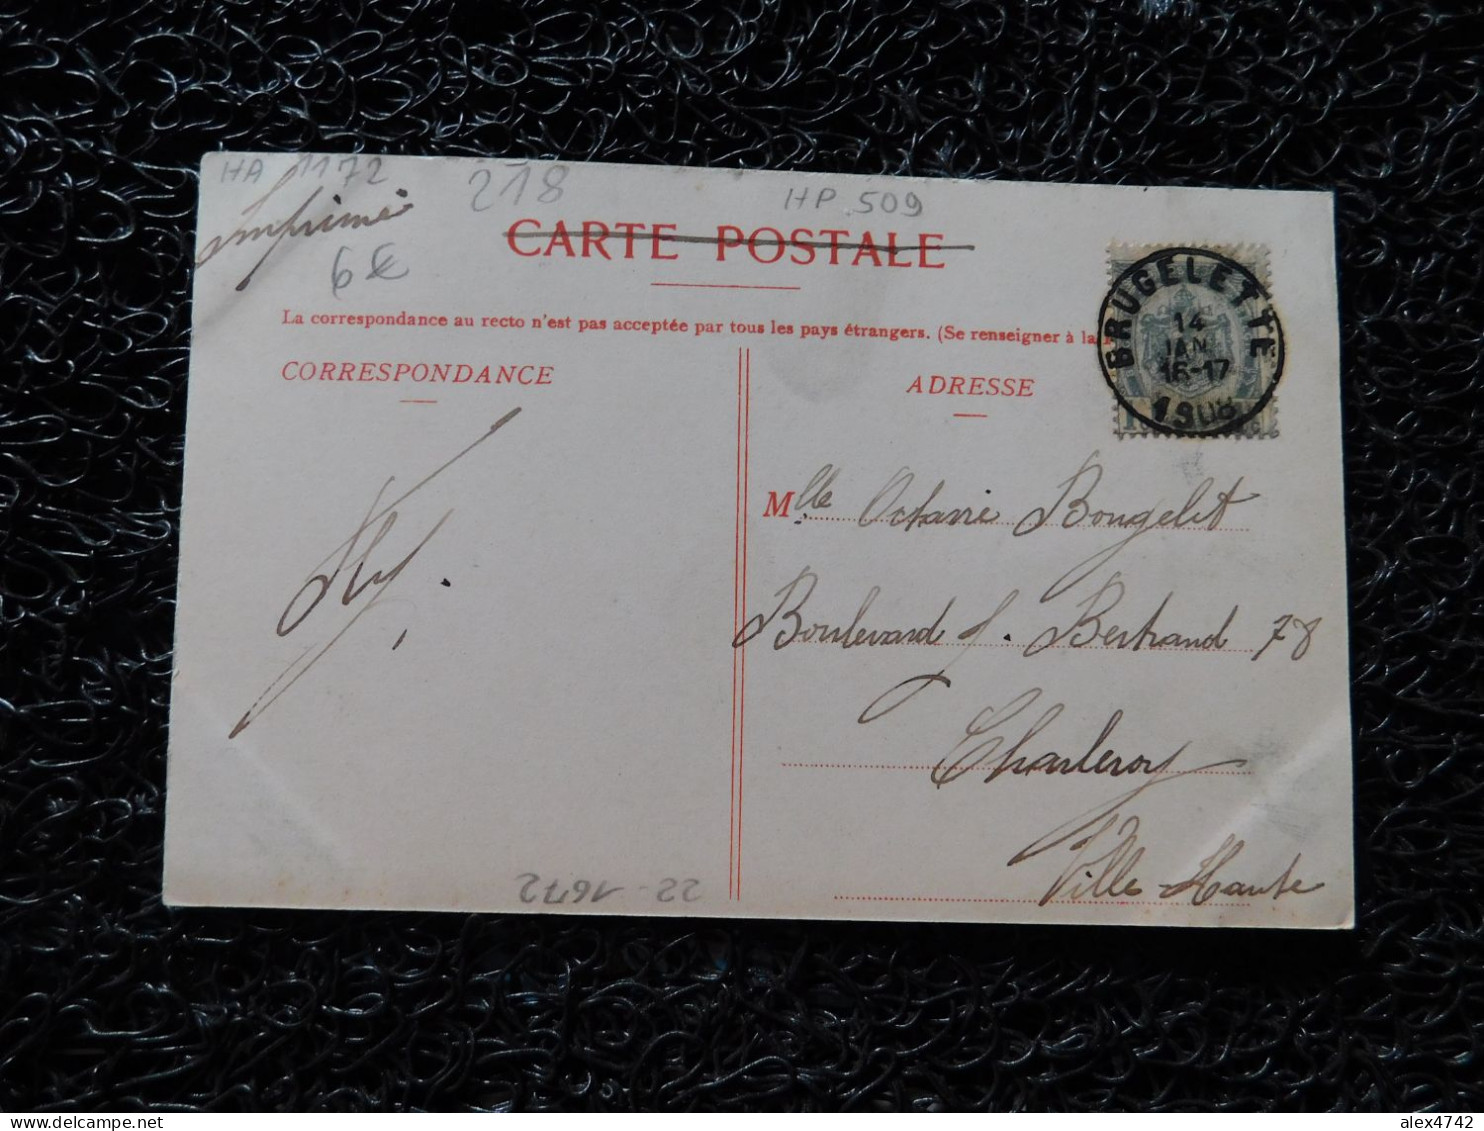 HA 1172
218
HP 509
Imprimé
6€
CARTE POSTALE
La correspondance au recto n'est pas acceptée par tous les pays étrangers. (Se renseigner à la
CORRESPONDANCE
ADRESSE
BRUGELETTE
14
JAN
16-17
1908
Mlle Octavie Bougelet
Boulevard J. Bertrand 78
Charleroy
Ville-Haute
22-1672
alex4742